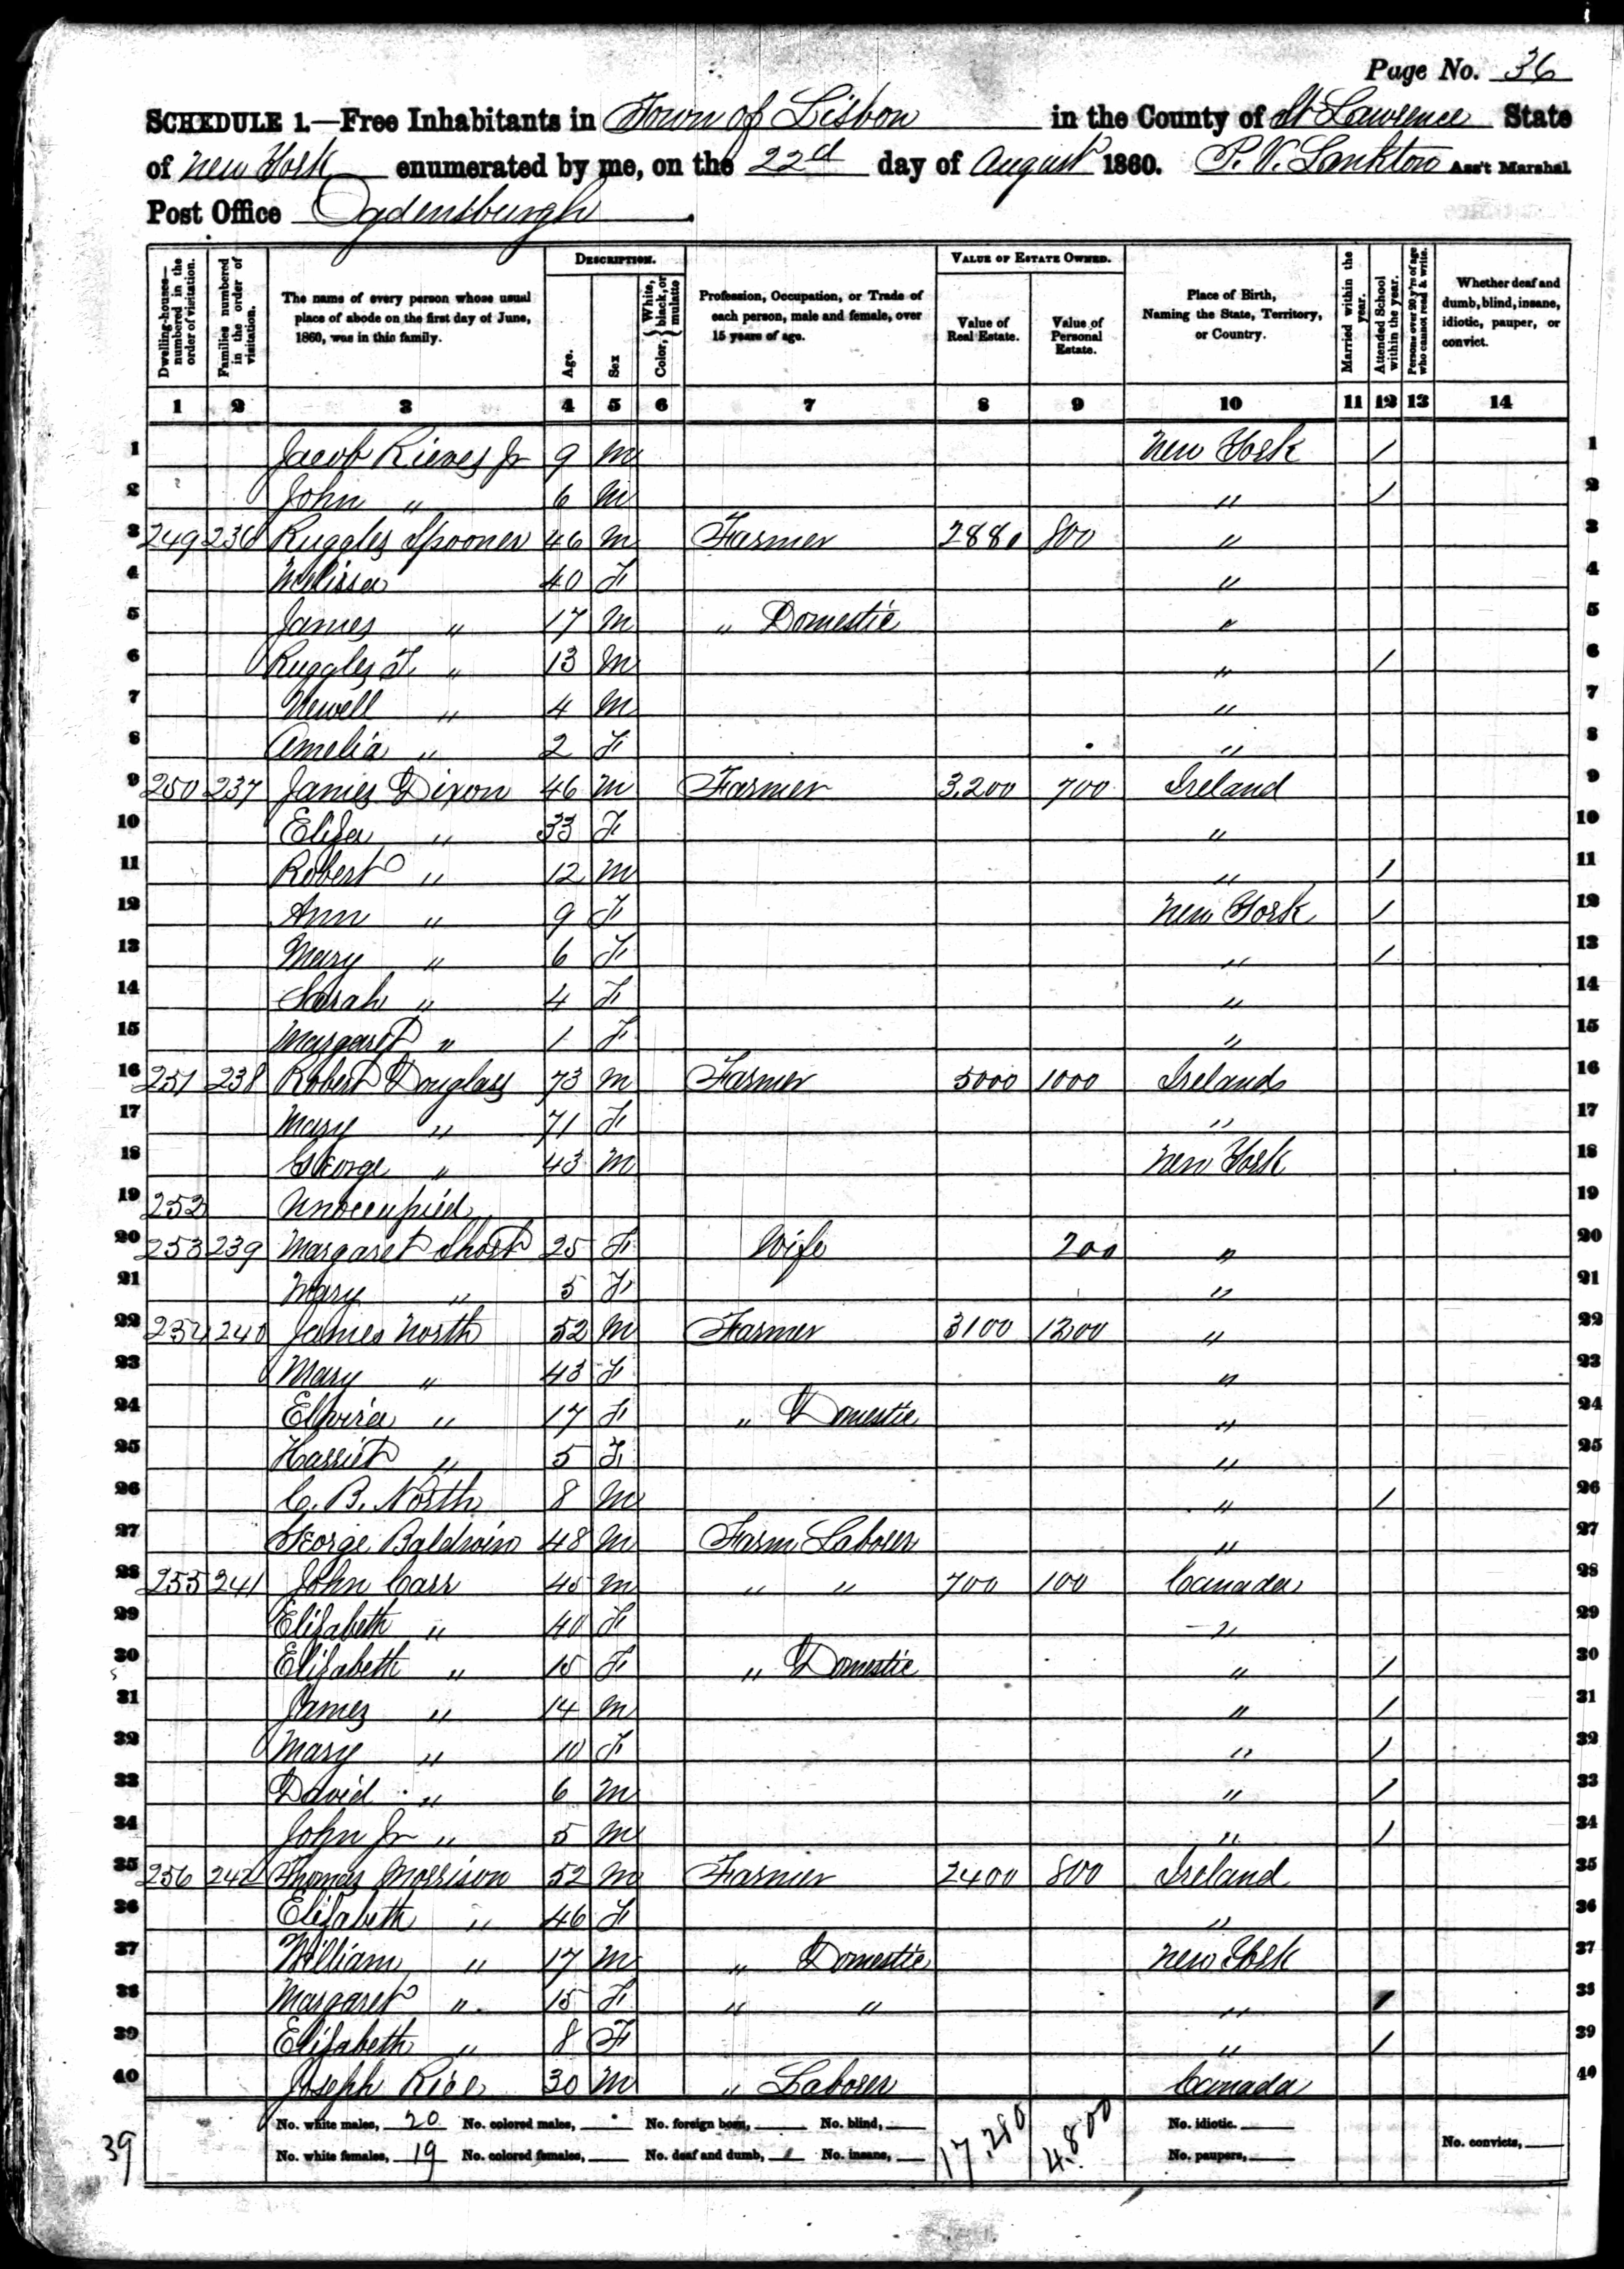 Page No. 36
SCHEDULE 1.—Free Inhabitants in Town of Lisbon in the County of St Lawrence State
of New York enumerated by me, on the 22d day of August 1860. P. V. Lankton Ass't Marshal
Post Office Ogdensburgh.
Dwelling-houses—numbered in the order of visitation. Families numbered in the order of visitation. The name of every person whose usual place of abode on the first day of June, 1860, was in this family. DESCRIPTION. Age. Sex Color, White, black, or mulatto Profession, Occupation, or Trade of each person, male and female, over 15 years of age. VALUE OF ESTATE OWNED. Value of Real Estate. Value of Personal Estate. Place of Birth, Naming the State, Territory, or Country. Married within the year. Attended School within the year. Persons over 20 y'rs of age who cannot read & write. Whether deaf and dumb, blind, insane, idiotic, pauper, or convict.
1 2 3 4 5 6 7 8 9 10 11 12 13 14
1 Jacob Rieves Jr 9 M New York / 1
2 John " 6 M " / 2
3 249 236 Ruggles Spooner 46 M Farmer 2880 800 " 3
4 Melissa 40 F " 4
5 James " 17 M " Domestic " 5
6 Ruggles T. " 13 M " / 6
7 Newell " 4 M " 7
8 Amelia " 2 F " 8
9 250 237 James Dixon 46 M Farmer 3,200 700 Ireland 9
10 Eliza " 33 F " 10
11 Robert " 12 M " / 11
12 Ann " 9 F New York / 12
13 Mary " 6 F " / 13
14 Sarah " 4 F " 14
15 Margaret " 1 F " 15
16 251 238 Robert Douglass 73 M Farmer 5000 1000 Ireland 16
17 Mary " 71 F " 17
18 George " 43 M New York 18
19 252 Unoccupied 19
20 253 239 Margaret Short 25 F Wife 200 " 20
21 Mary " 5 F " 21
22 254 240 James North 52 M Farmer 3100 1200 " 22
23 Mary " 43 F " 23
24 Elvira " 17 F " Domestic " 24
25 Harriet " 5 F " 25
26 C. B. North 8 M " / 26
27 George Baldwin 48 M Farm Laborer " 27
28 255 241 John Carr 45 M " " 700 100 Canada 28
29 Elizabeth " 40 F " 29
30 Elizabeth " 15 F " Domestic " / 30
31 James " 14 M " / 31
32 Mary " 10 F " / 32
33 David " 6 M " / 33
34 John Jr " 5 M " / 34
35 256 242 Thomas Morrison 52 M Farmer 2400 800 Ireland 35
36 Elizabeth " 46 F " 36
37 William " 17 M " Domestic New York 37
38 Margaret " 15 F " " " / 38
39 Elizabeth " 8 F " / 39
40 Joseph Rice 30 M " Laborer Canada 40
No. white males, 20 No. colored males, No. foreign born, No. blind, 17,280 4,800 No. idiotic.
39 No. white females, 19 No. colored females, No. deaf and dumb, No. insane, No. paupers, No. convicts,